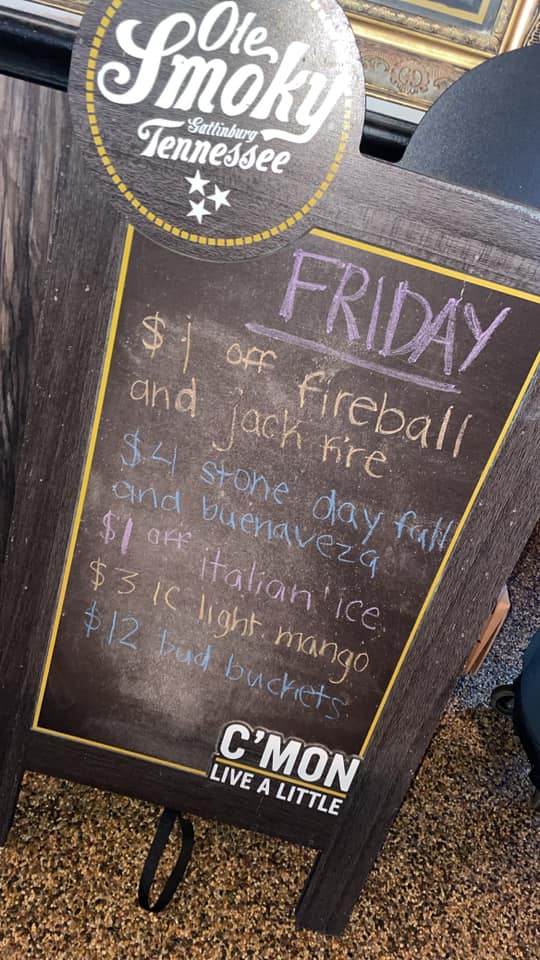 Ole
Smoky
Gatlinburg
Tennessee
FRIDAY
$1 off fireball
and jack fire
$4 stone day fall
and buenaveza
$1 off italian ice
$3 IC light mango
$12 bud buckets
C'MON
LIVE A LITTLE